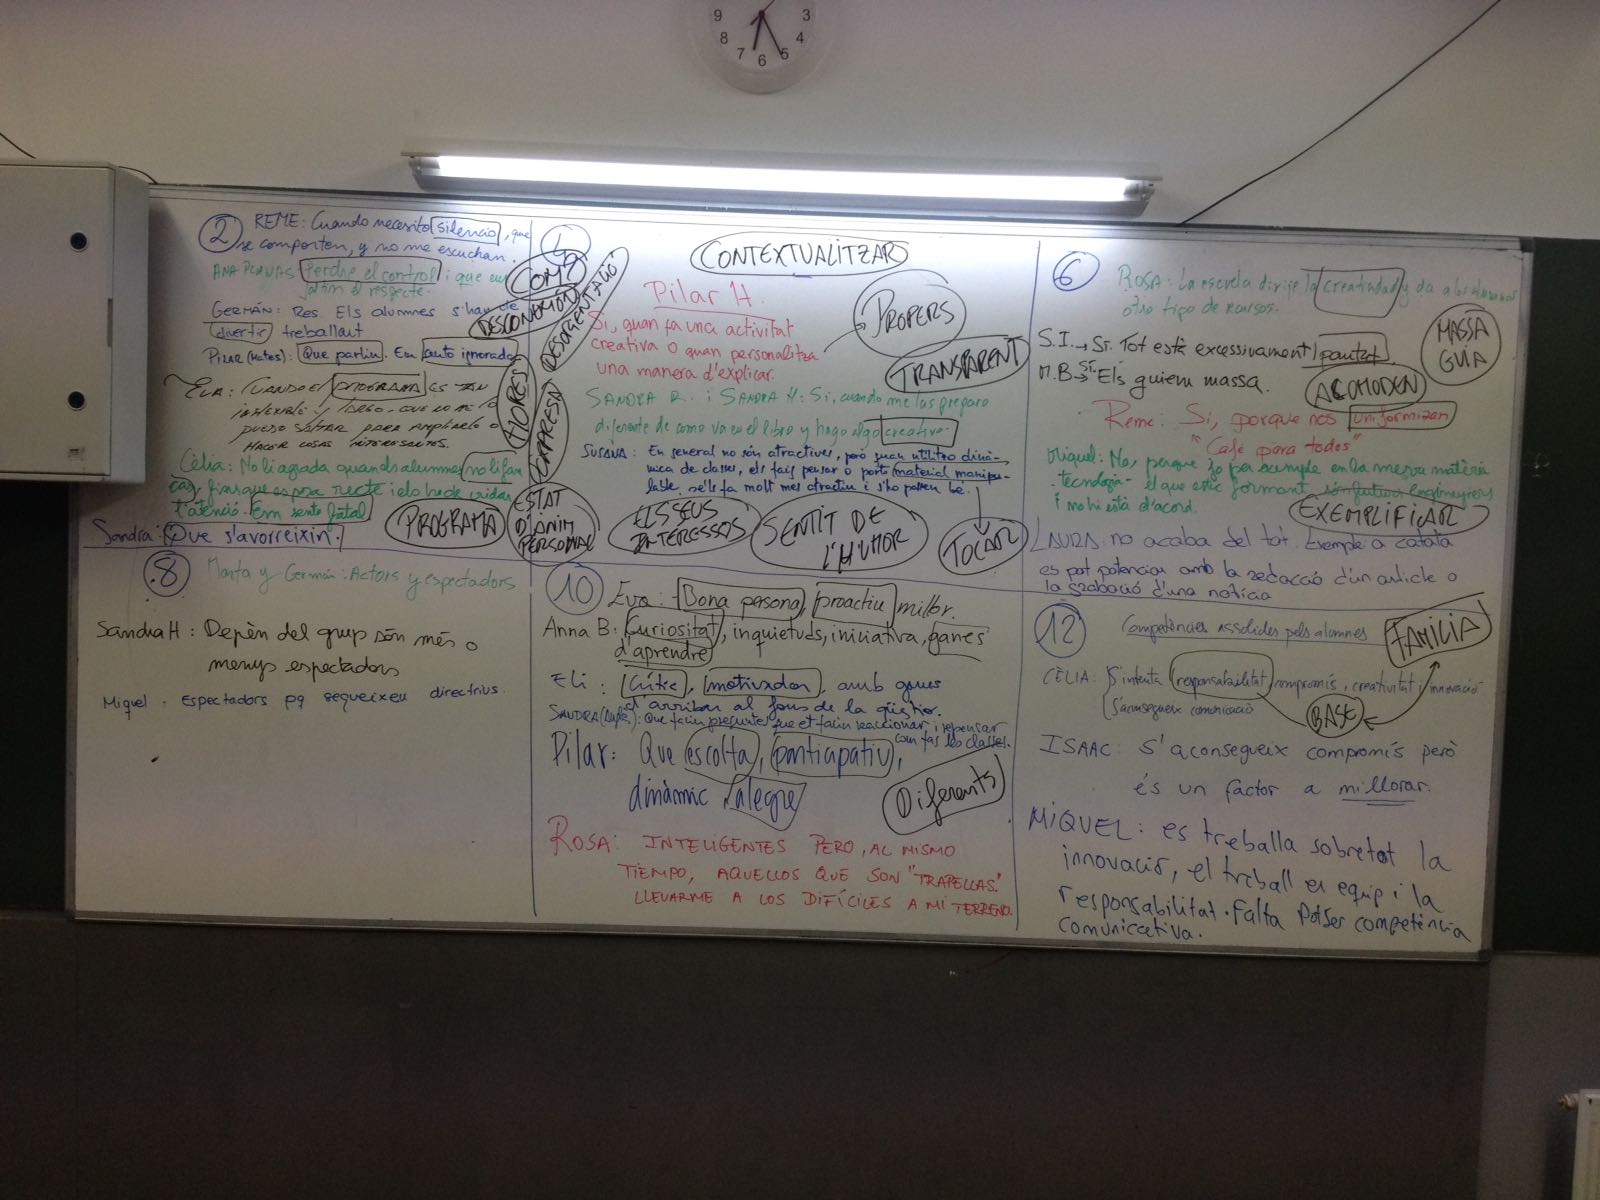 9
3
8
4
7
5
6
2
REME: Cuando necesito silencio, que
se comporten, y no me escuchan.
ANA PLANAS: Perdre el control i que em
faltin el respecte.
GERMÁN: Res. Els alumnes s'han de
divertir treballant
PILAR (Mates): Que parlin. Em sento ignorada
EVA: CUANDO EL PROGRAMA ES TAN
INFLEXIBLE Y LARGO, QUE NO ME LO
PUEDO SALTAR PARA AMPLIARLO O
HACER COSAS INTERESANTES.
Cèlia: No li agrada quan els alumnes no li fan
cas, fins que es posa recte i els ha de cridar
l'atenció. Em sento fatal
Sandra: Que s'avorreixin.
COM?
DESCONNEXIÓ
DESORGANITZACIÓ
PROGRAMA
ESTAT
D'ÀNIM
PERSONAL
CONTEXTUALITZAR
Pilar H.
Si, quan fa una activitat
creativa o quan personalitza
una manera d'explicar.
PROPERS
TRANSPARENT
SANDRA R. i SANDRA H: Si, cuando me las preparo
diferente de como va en el libro y hago algo creativo.
SUSANA: En general no són atractives, però quan utilitzo dinà-
mica de classes, els faig pensar o porto material manipu-
lable se'ls fa molt més atractiu i s'ho passen bé.
ELS SEUS
INTERESSOS
SENTIT DE
L'HUMOR
TOCAR
6
ROSA: La escuela dirige la creatividad y da a los alumnos
otro tipo de recursos.
S.I. → Sí. Tot està excessivament pautat
M.B → Sí. Els guiem massa.
MASSA
GUIA
ACOMODEN
Reme: Si, porque nos uniformizan
"Cafe para todos"
Miquel: No, perque jo per exemple en la meva matèria
- tecnologia - el que estic formant són futurs enginyers
i no hi està d'acord.
EXEMPLIFICAR
LAURA: no acaba del tot. Exemple a català
es pot potenciar amb la redacció d'un article o
la grabació d'una notícia
8
Marta y Germán: Actors y espectadors
Sandra H: Depèn del grup són més o
menys espectadors
Miquel: Espectadors pq segueixen directrius.
10
Eva: Bona persona, proactiu millor.
Anna B: Curiositat, inquietuds, iniciativa, ganes
d'aprendre
Eli: Crític, motivador, amb ganes
d'arribar al fons de la qüestió.
SANDRA (Anglès): Que facin preguntes que et facin reaccionar i repensar
com fas les classes.
Pilar: Que escolta, participatiu,
dinàmic i alegre
Diferents
ROSA: INTELIGENTES PERO, AL MISMO
TIEMPO, AQUELLOS QUE SON "TRAPELLAS".
LLEVARME A LOS DIFÍCILES A MI TERRENO.
12
Competències assolides pels alumnes
FAMÍLIA
CÈLIA: S'intenta responsabilitat, compromís, creativitat i innovació
S'aconsegueix comunicació
BASE
ISAAC: S'aconsegueix compromís però
és un factor a millorar.
MIQUEL: es treballa sobretot la
innovació, el treball en equip i la
responsabilitat. Falta potser competència
comunicativa.